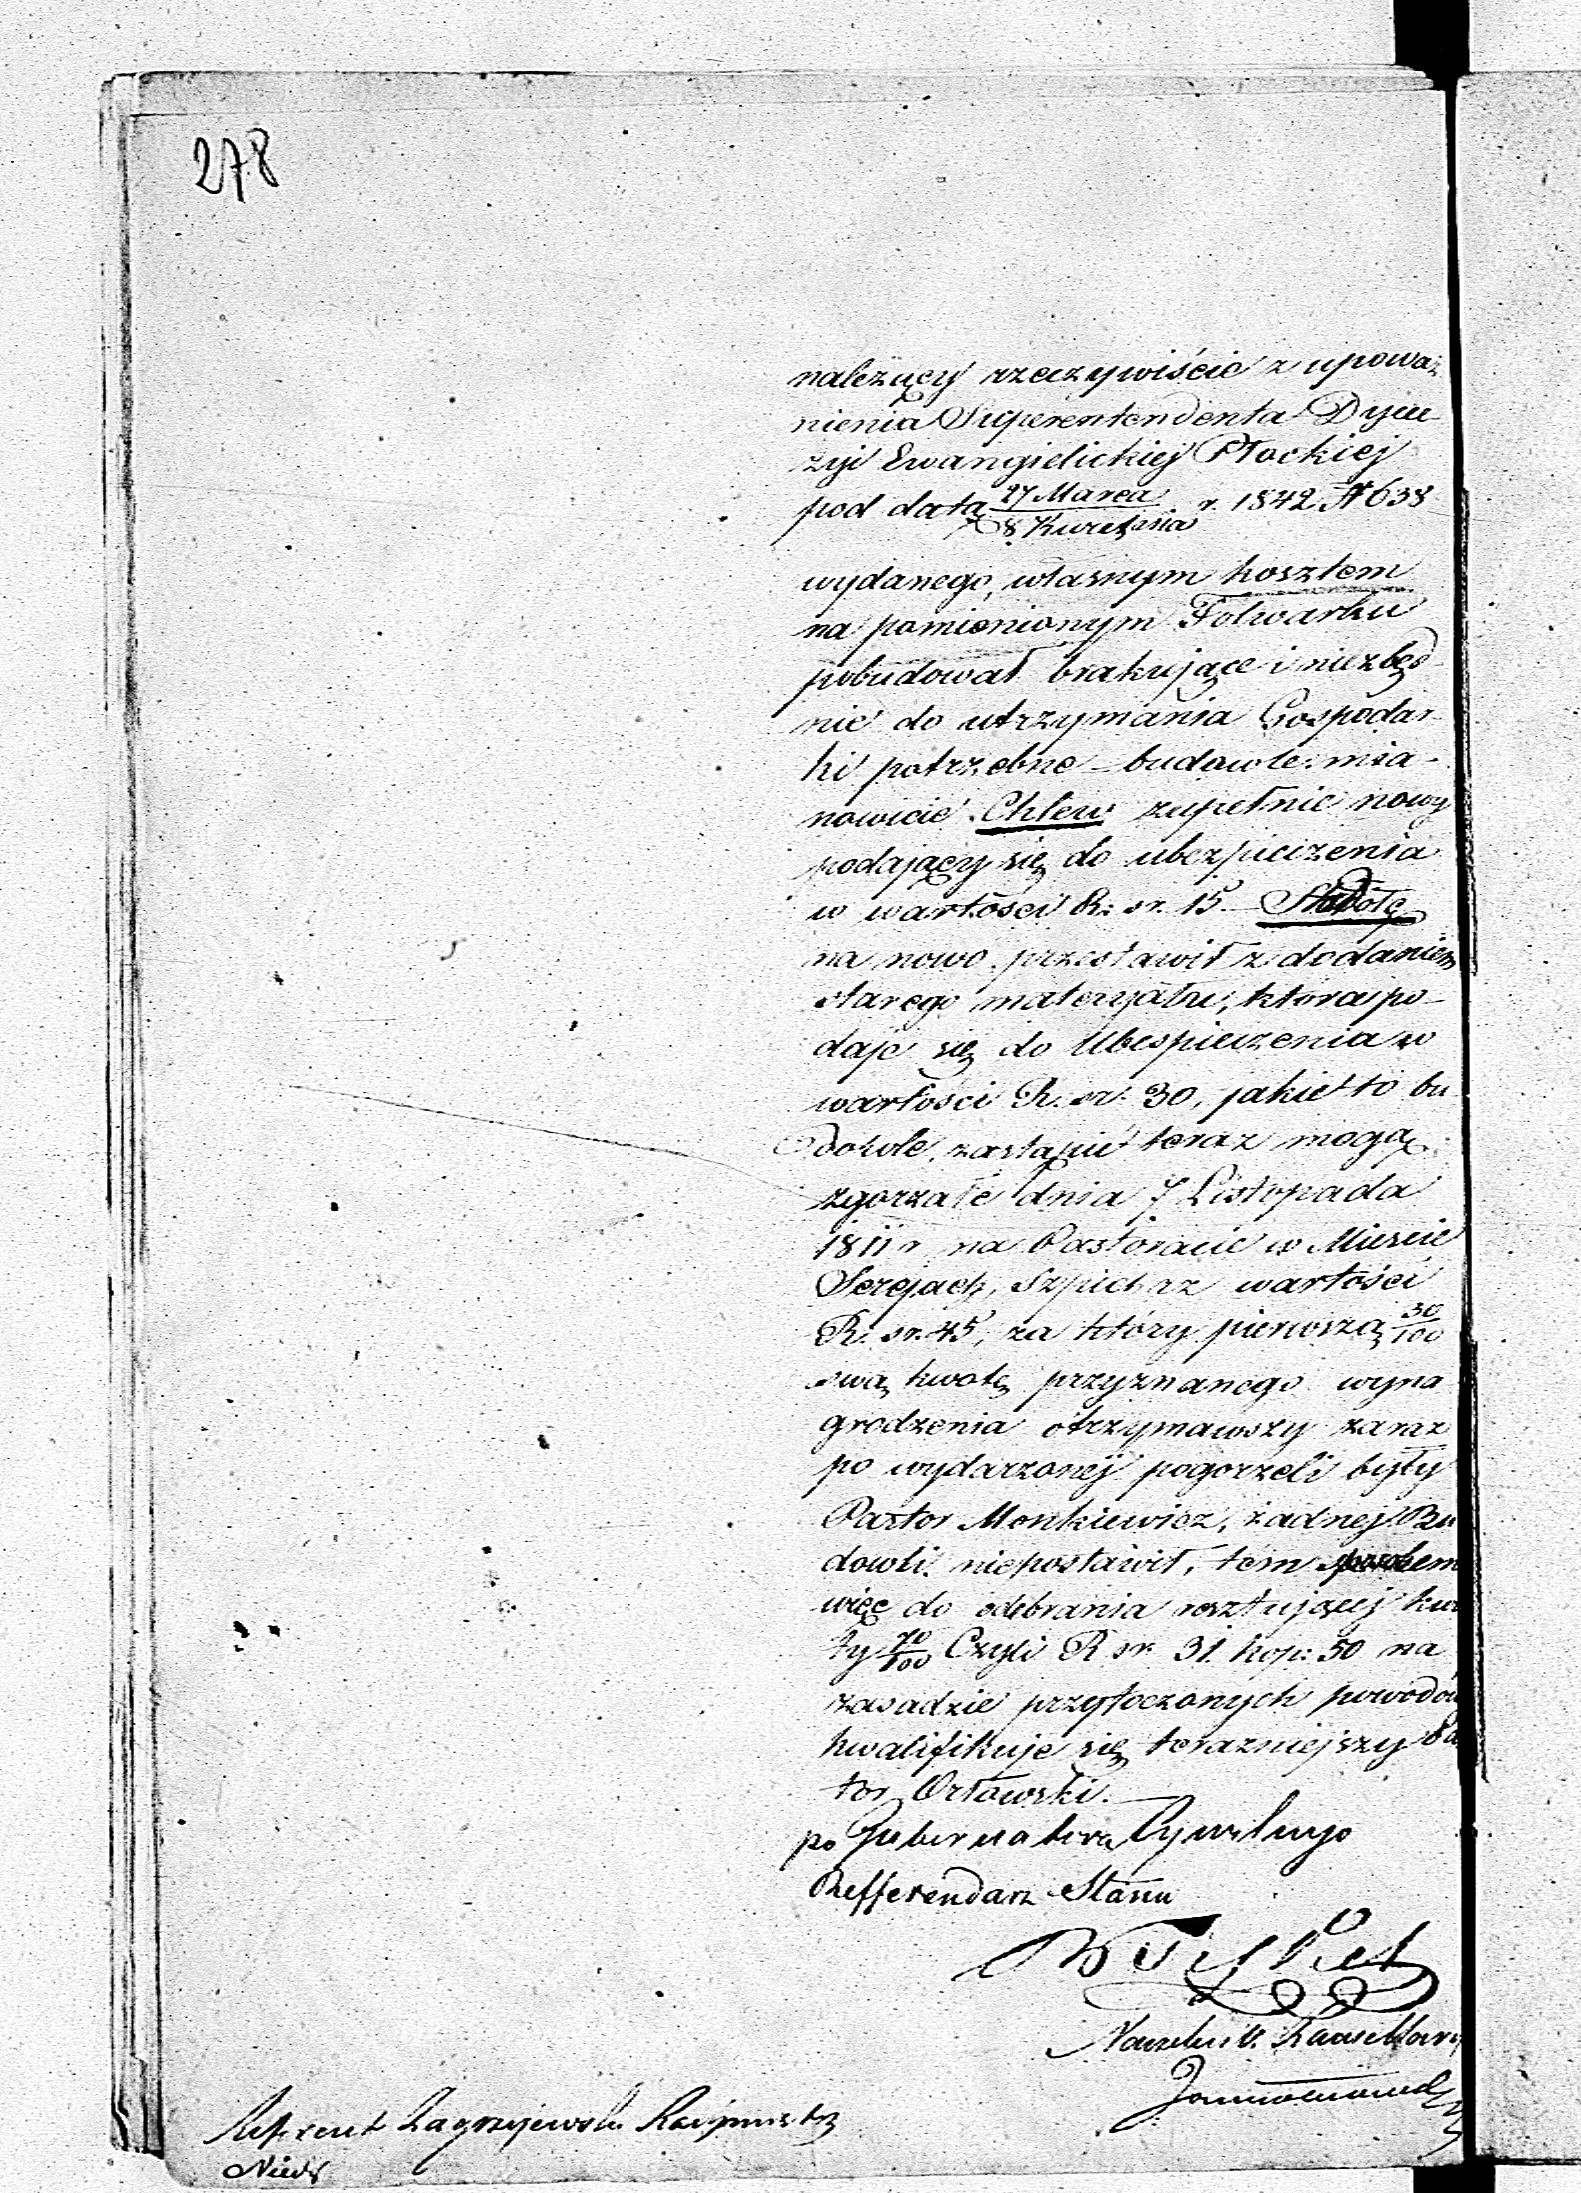 278
należący rzeczywiście z upoważ
nienia Superentendenta Dyec
zyi Ewangielickiej Płockiej
pod datą 27 Marca / 8 Kwietnia r. 1842 N 638
wydanego, własnym kosztem
na pomienionym Folwarku
pobudował brakujące i niezbęd
nie do utrzymania Gospodar
ki potrzebne budowle: mia-
nowicie Chlew zupełnie nowy
podający się do ubezpieczenia
w wartości R: sr. 15. Stodołę
na nowo przestawił z dodaniem
starego materyału, która po-
daje się do Ubespieczenia w
wartości R. sr. 30, jakie to bu
dowle, zastąpić teraz mogą
zgorzałe dnia 7 Listopada
1811 r na Pastoracie w Mieście
Serejach, Szpichrz wartości
R. sr. 45, za który pierwszą 30/100
swą kwotę przyznanego wyna
grodzenia otrzymawszy zaraz
po wydarzonej pogorzeli były
Pastor Monkiewicz, żadnej Bu
dowli niepostawił, tem sposobem
więc do odebrania resztującej kwo
ty 70/100 Czyli R sr. 31. kop: 50 na
zasadzie przytoczonych powodów
kwalifikuje się terazniejszy Pa
tor Orłowski.
po Gubernatora Cywilnego
Refferendarz Stanu
Naczelnik
Referent Zagrzejewski